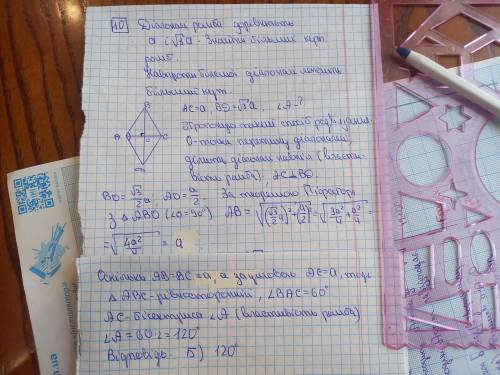 10 Діагоналі ромба дорівнюють
a і √3a. Знайти більший кут
ромба.
Навпроти більшої діагоналі лежить
більший кут.
AC=a, BD=√3a, ∠A-?
Пропоную такий спосіб розв'язання.
O-точка перетину діагоналей,
ділить діагоналі навпіл (власти-
вість ромба). AC⊥BD.
B
A O C
BO=√3/2a, AO=a/2. За теоремою Піфагора
з △ABO (∠O=90°) AB=√((√3/2a)²+(a/2)²)=√(3a²/4+a²/4)=
=√(4a²/4) = a
Оскільки AB=BC=a, а за умовою AC=a, тоді
△ABC-рівносторонній, ∠BAC=60°
AC-бісектриса ∠A (властивість ромба)
∠A=60·2=120°
Відповідь Б) 120°